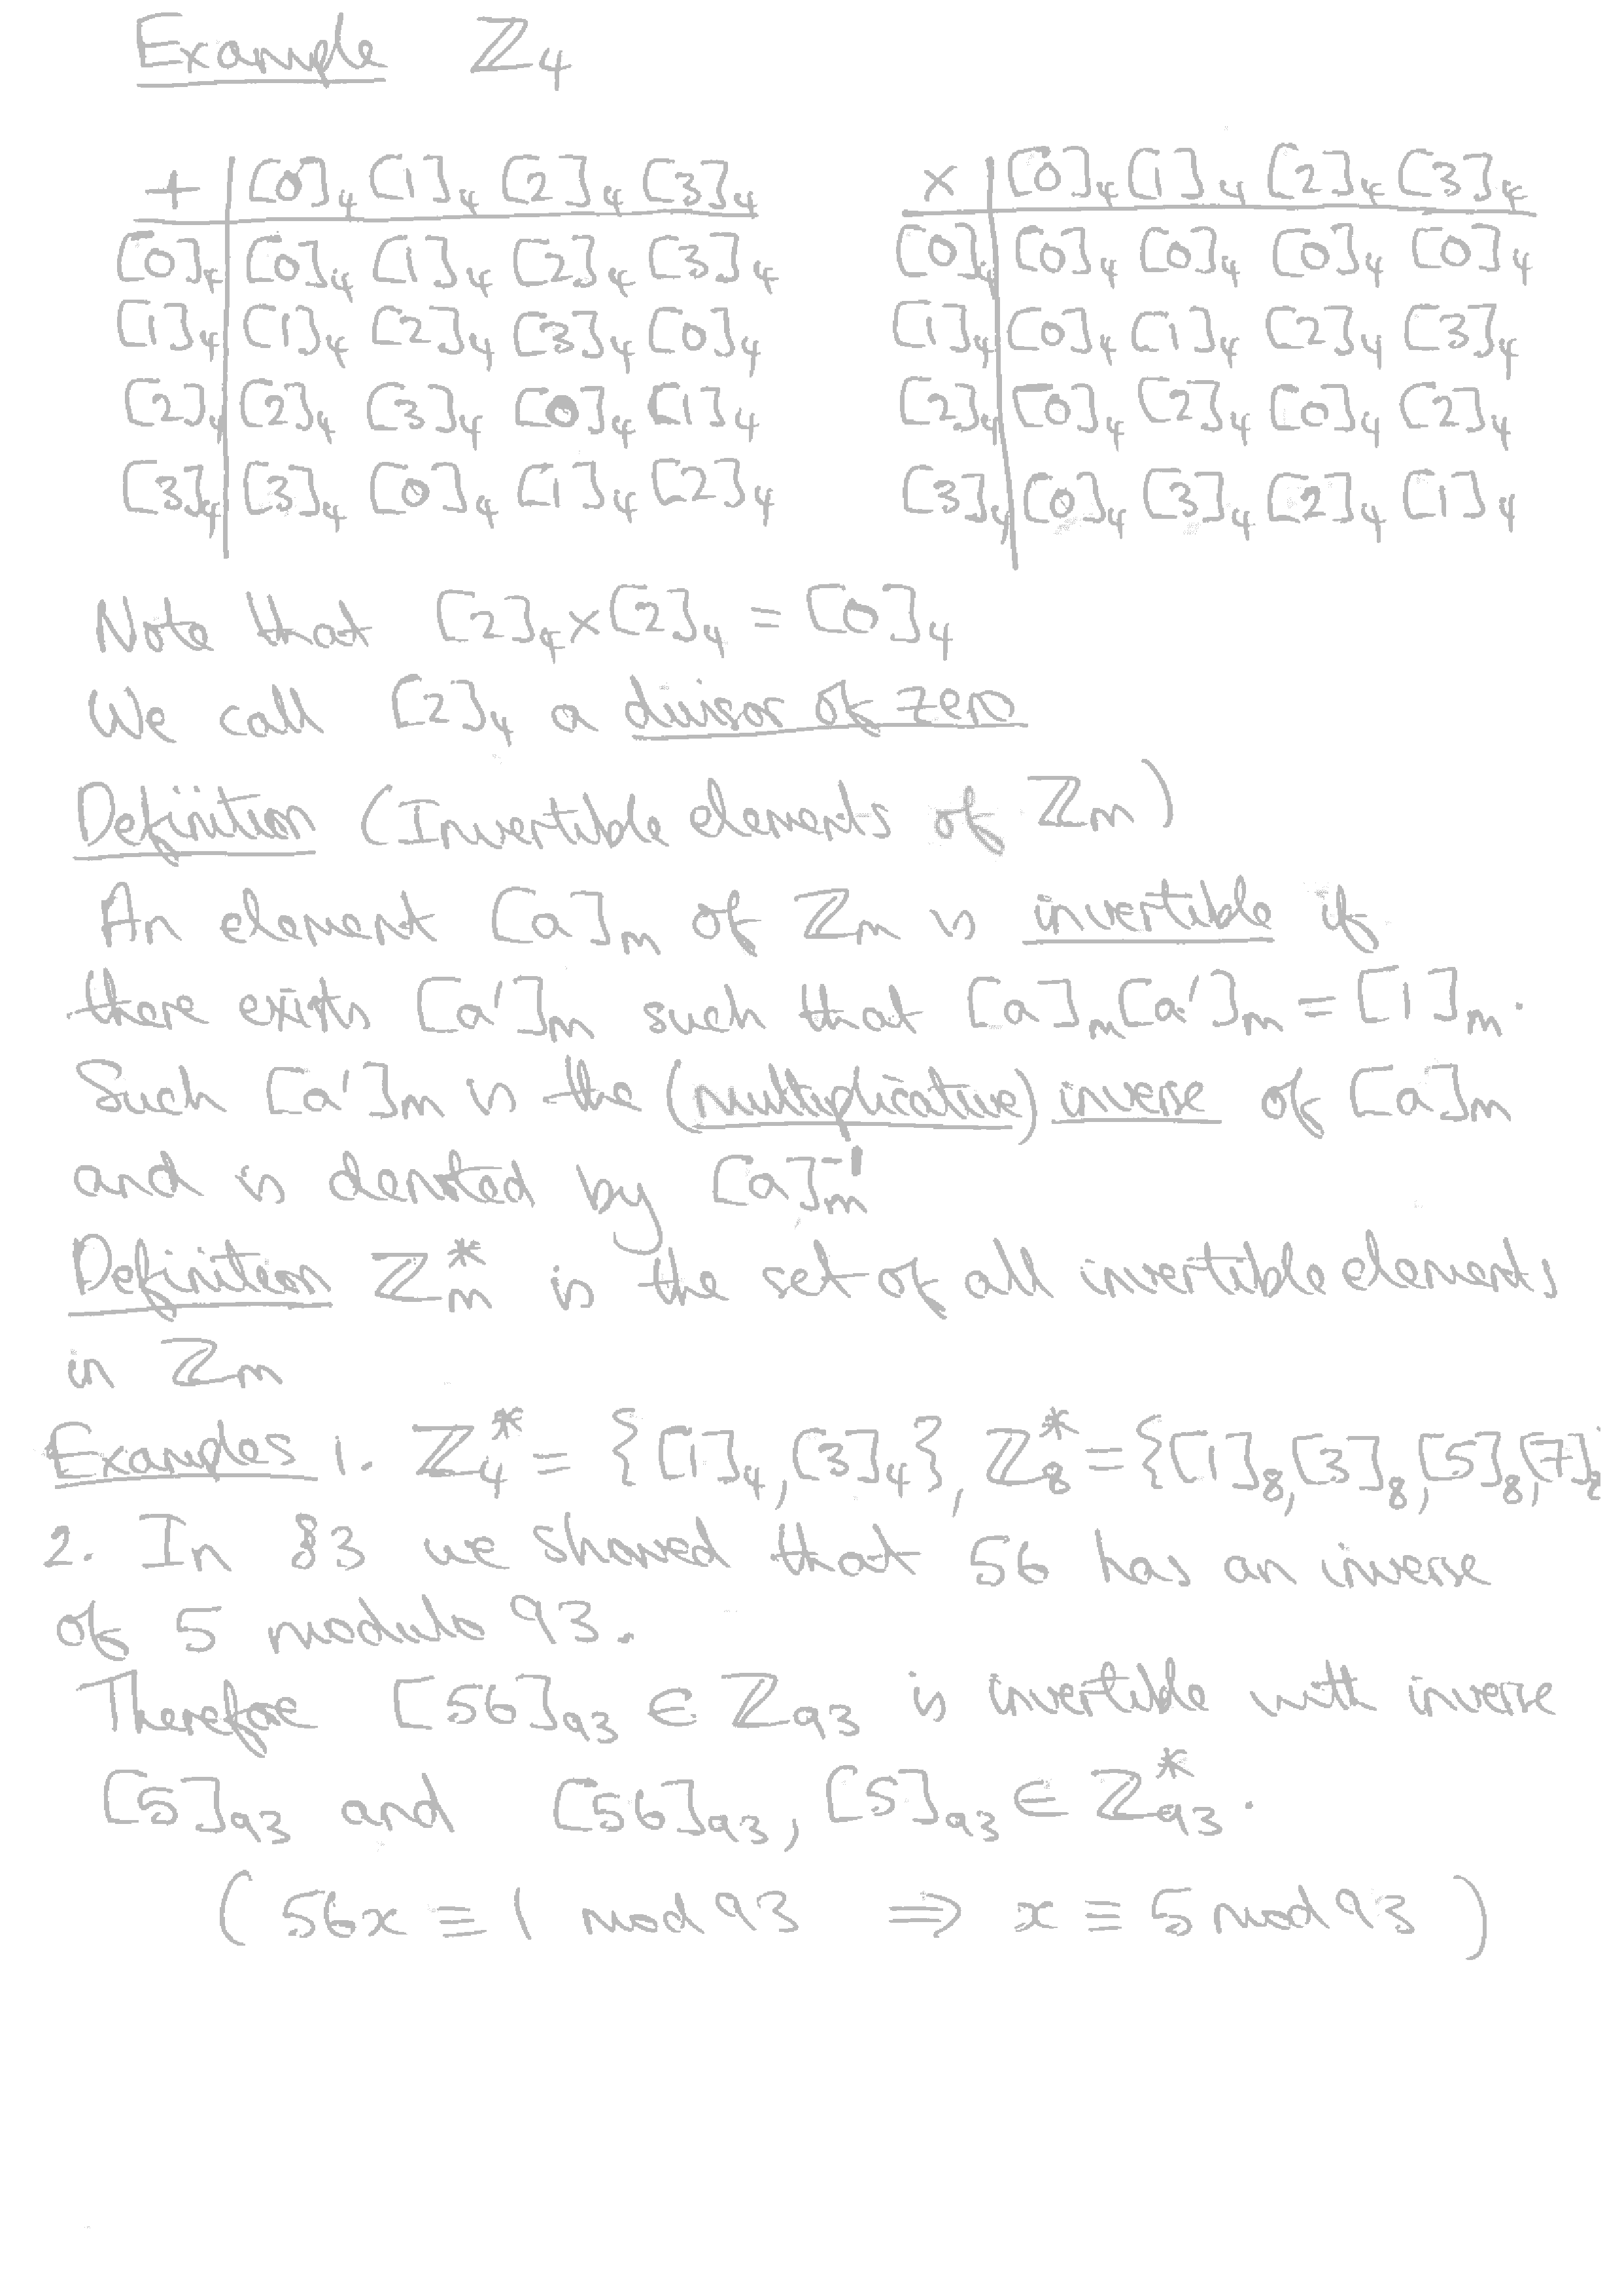 Example ℤ₄
+ | [0]₄ [1]₄ [2]₄ [3]₄
[0]₄ | [0]₄ [1]₄ [2]₄ [3]₄
[1]₄ | [1]₄ [2]₄ [3]₄ [0]₄
[2]₄ | [2]₄ [3]₄ [0]₄ [1]₄
[3]₄ | [3]₄ [0]₄ [1]₄ [2]₄
× | [0]₄ [1]₄ [2]₄ [3]₄
[0]₄ | [0]₄ [0]₄ [0]₄ [0]₄
[1]₄ | [0]₄ [1]₄ [2]₄ [3]₄
[2]₄ | [0]₄ [2]₄ [0]₄ [2]₄
[3]₄ | [0]₄ [3]₄ [2]₄ [1]₄
Note that [2]₄×[2]₄ = [0]₄
We call [2]₄ a divisor of zero
Definition (Invertible elements of ℤm)
An element [a]m of ℤm is invertible if
there exists [a']m such that [a]m[a']m = [1]m.
Such [a']m is the (multiplicative) inverse of [a]m
and is denoted by [a]m⁻¹
Definition ℤm* is the set of all invertible elements
in ℤm
Examples 1. ℤ₄* = {[1]₄, [3]₄}, ℤ₈* = {[1]₈, [3]₈, [5]₈, [7]₈
2. In §3 we showed that 56 has an inverse
of 5 modulo 93.
Therefore [56]₉₃ ∈ ℤ₉₃ is invertible with inverse
[5]₉₃ and [56]₉₃, [5]₉₃ ∈ ℤ₉₃*.
(56x ≡ 1 mod 93 ⇒ x ≡ 5 mod 93)